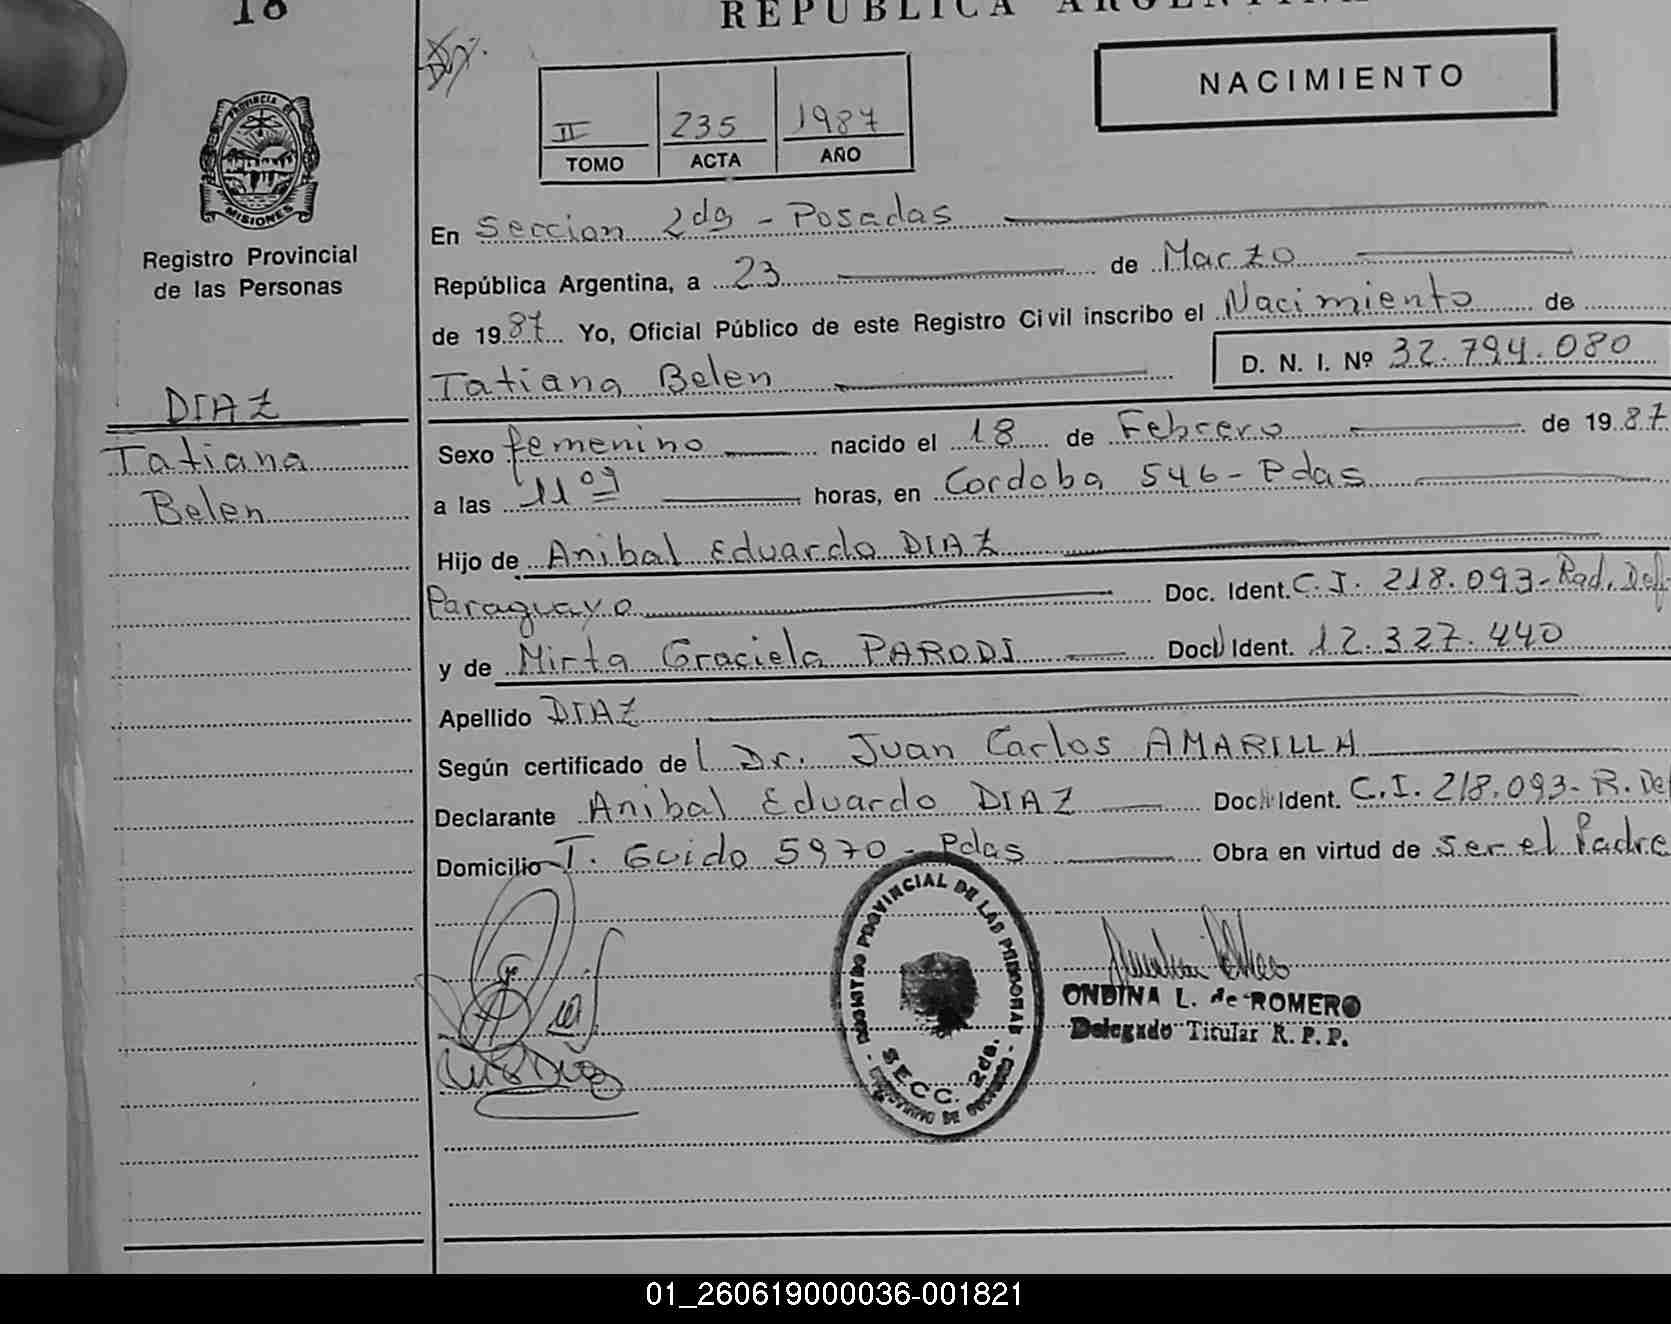 18
REPUBLICA ARGENTINA
NACIMIENTO
II 235 1987
TOMO ACTA AÑO
PROVINCIA DE
MISIONES
Registro Provincial
de las Personas
DIAZ
Tatiana
Belen
En Seccion 2da - Posadas
República Argentina, a 23 de Marzo
de 1987 Yo, Oficial Público de este Registro Civil inscribo el Nacimiento de
Tatiana Belen D. N. I. Nº 32.794.080
Sexo femenino nacido el 18 de Febrero de 1987
a las 11 horas, en Cordoba 546 - Pdas
Hijo de Anibal Eduardo DIAZ
Paraguayo Doc. Ident. C.I. 218.093 - Rad. Def
y de Mirta Graciela PARODI Doc Ident. 12.327.440
Apellido DIAZ
Según certificado del Dr. Juan Carlos AMARILLA
Declarante Anibal Eduardo DIAZ Doc Ident. C.I. 218.093 - R. Def
Domicilio T. Guido 5970 - Pdas Obra en virtud de ser el Padre
REGISTRO PROVINCIAL DE LAS PERSONAS
SECC. 2da.
MINISTERIO DE GOBIERNO
ONDINA L. de ROMERO
Delegado Titular R. P. P.
01_260619000036-001821